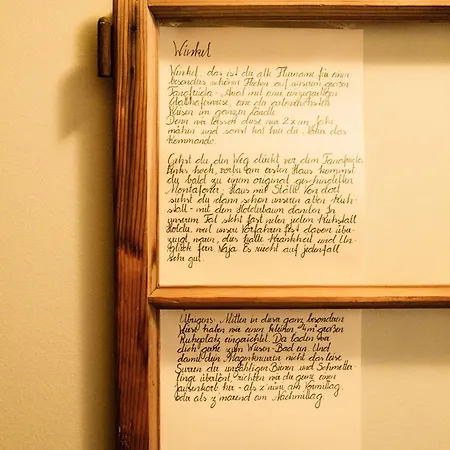 Winkel
Winkel, das ist der alte Flurname für einen
besonders schönen Flecken auf unserem großen
Tanafreida-Areal mit einer einzigartigen
Glatthaferwiese, eine der artenreichsten
Wiesen im ganzen Ländle.
Denn wir lassen diese nur 2x im Jahr
mähen und sonst hat hier die Natur das
Kommando.
Gehst du den Weg direkt vor dem
links hoch, vorbei am ersten Haus kommst
du bald zu einem original geschindelten
Montafoner Haus mit Ställe. Von dort
siehst du dann schon unseren alten Kuh-
stall - mit dem Holderbaum daneben. In
unserem Tal steht fast neben jedem Kuhstall
Holder, weil unsere Vorfahren fest davon über-
zeugt waren, dies halte Krankheit und Un-
glück fern. Naja. Es riecht auf jedenfall
sehr gut.
Übrigens: Mitten in dieser ganz besonderen
Wiese haben wir einen kleinen 4m² großen
Ruheplatz eingerichtet. Da laden wir
dich gerne zum Wiesen-Bad ein. Und
damit dein Magenknurren nicht das leise
Surren der unzähligen Bienen und Schmetter-
linge übertönt, richten wir dir gerne einen
Jausenkorb her - als z'nüni am Vormittag
oder als z'marend am Nachmittag.